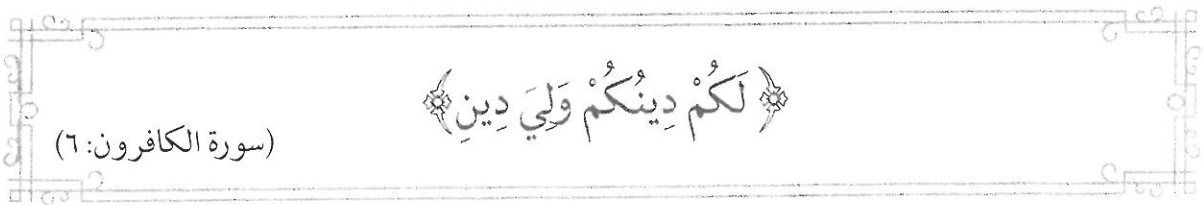 ﴿لَكُمْ دِينُكُمْ وَلِيَ دِينِ﴾
(سورة الكافرون: ٦)